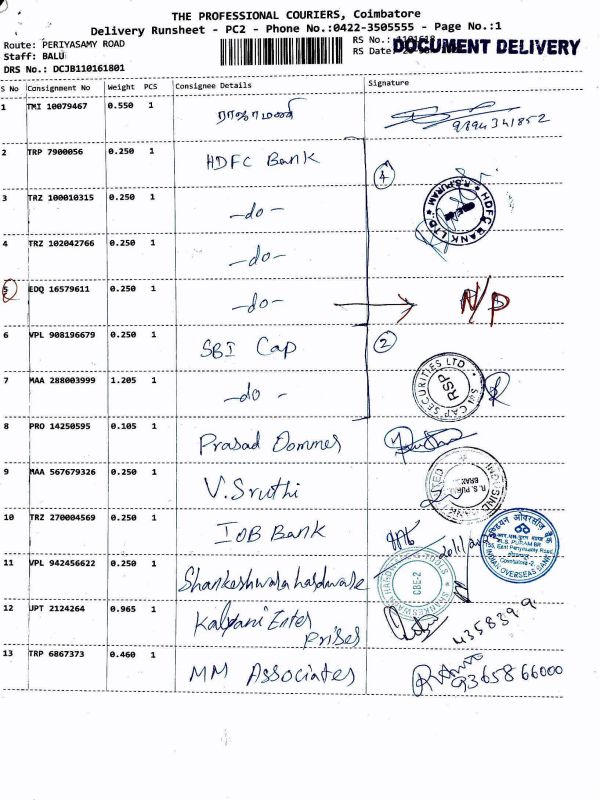 THE PROFESSIONAL COURIERS, Coimbatore
Delivery Runsheet - PC2 - Phone No.:0422-3505555 - Page No.:1
Route: PERIYASAMY ROAD
RS No.:
DOCUMENT DELIVERY
Staff: BALU
RS Date:
DRS No.: DCJB110161801
S No Consignment No Weight PCS Consignee Details Signature
1 TMI 10079467 0.550 1 ராஜாமணி 9894341852
2 TRP 7900056 0.250 1 HDFC Bank 4
R.S.PURAM * HDFC BANK LTD. *
3 TRZ 100010315 0.250 1 -do-
4 TRZ 102042766 0.250 1 -do-
5 EDQ 16579611 0.250 1 -do- N/P
6 VPL 908196679 0.250 1 SBI Cap 2
7 MAA 288003999 1.205 1 -do-
SBI CAP SECURITIES LTD RSP
8 PRO 14250595 0.105 1 Prasad Dommes
9 MAA 567679326 0.250 1 V.Sruthi
10 TRZ 270004569 0.250 1 IOB Bank
इण्डियन ओवरसीज़ बैंक
R.S. PURAM BR
Coimbatore-2
INDIAN OVERSEAS BANK
11 VPL 942456622 0.250 1 Shankeshwara hardware
CBE-2
12 JPT 2124264 0.965 1 Kalpani Enter
prises
4358399
13 TRP 6867373 0.460 1 MM Associates 9365866000